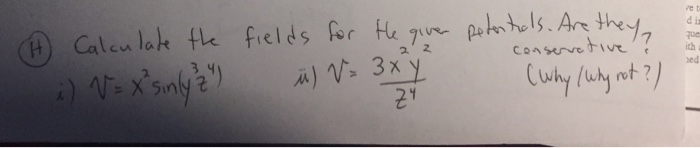 (H) Calculate the fields for the given potentials. Are they conservative?
(Why/Why not?)
i) V = x² sin(y³z⁴) ii) V = 3x²y²/z⁴